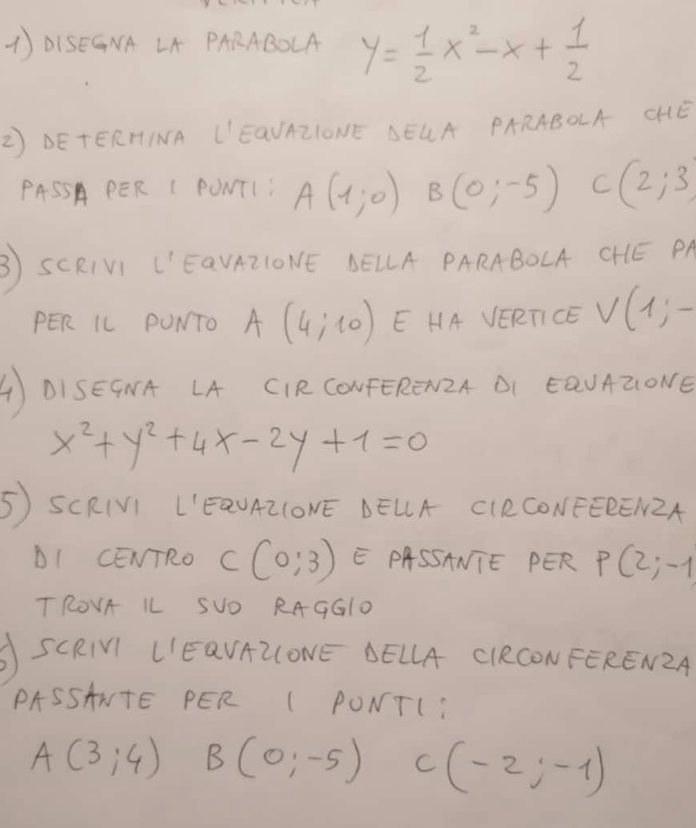 1) DISEGNA LA PARABOLA y = 1/2 x² - x + 1/2
2) DETERMINA L'EQUAZIONE DELLA PARABOLA CHE
PASSA PER I PUNTI: A (1;0) B(0;-5) C(2;3)
3) SCRIVI L'EQUAZIONE DELLA PARABOLA CHE PA
PER IL PUNTO A (4;10) E HA VERTICE V(1;-
4) DISEGNA LA CIRCONFERENZA DI EQUAZIONE
x² + y² + 4x - 2y + 1 = 0
5) SCRIVI L'EQUAZIONE DELLA CIRCONFERENZA
DI CENTRO C (0;3) E PASSANTE PER P(2;-1)
TROVA IL SUO RAGGIO
6) SCRIVI L'EQUAZIONE DELLA CIRCONFERENZA
PASSANTE PER I PUNTI:
A (3;4) B(0;-5) C(-2;-1)